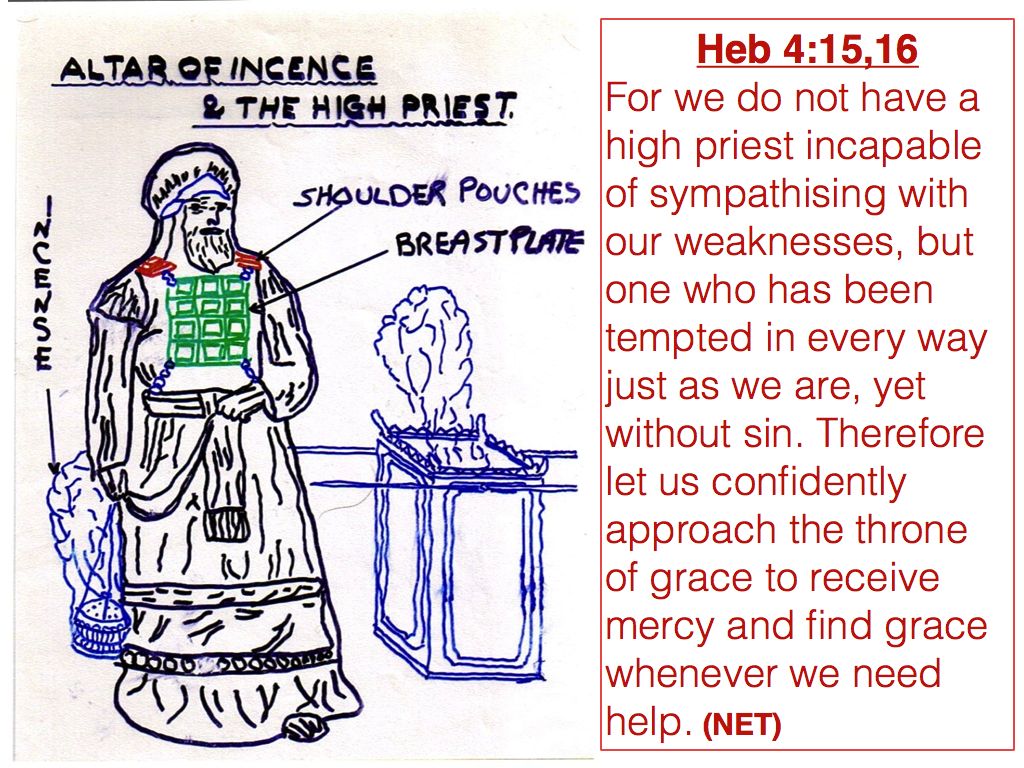 ALTAR OF INCENCE
& THE HIGH PRIEST.
SHOULDER POUCHES
BREASTPLATE
INCENSE
Heb 4:15,16
For we do not have a
high priest incapable
of sympathising with
our weaknesses, but
one who has been
tempted in every way
just as we are, yet
without sin. Therefore
let us confidently
approach the throne
of grace to receive
mercy and find grace
whenever we need
help. (NET)